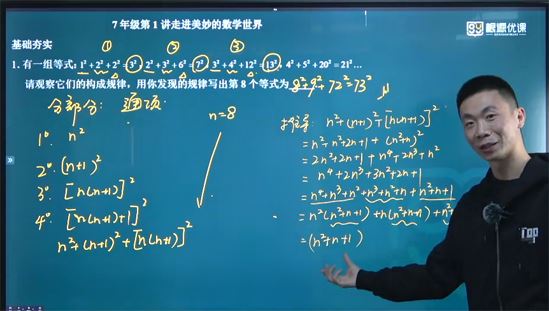 7年级第1讲走进美妙的数学世界
根源优课
基础夯实
① ② ③
1. 有一组等式: 1²+2²+2²=3², 2²+3²+6²=7², 3²+4²+12²=13², 4²+5²+20²=21²…
请观察它们的构成规律,用你发现的规律写出第8个等式为 8²+9²+72²=73²
分部分: 通项:
n=8
1° n²
2° (n+1)²
3° [n(n+1)]²
4° [n(n+1)+1]²
n²+(n+1)²+[n(n+1)]²
n²+(n+1)²+[n(n+1)]²
=n²+n²+2n+1+(n²+n)²
=2n²+2n+1+n⁴+2n³+n²
=n⁴+2n³+3n²+2n+1
=n⁴+n³+n²+n³+n²+n+n²+n+1
=n²(n²+n+1)+n(n²+n+1)+n²+
=(n²+n+1)